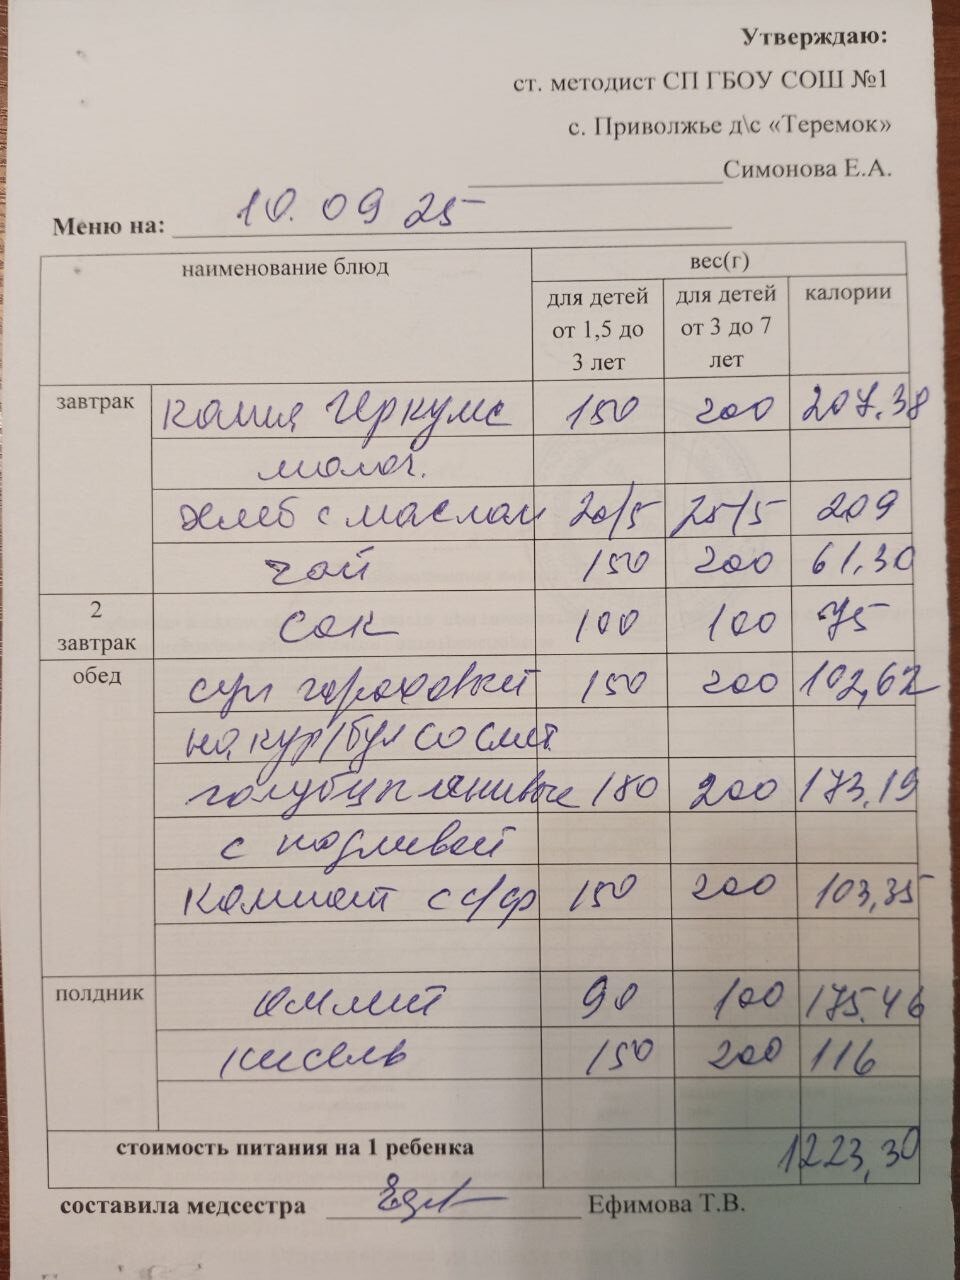 Утверждаю:
ст. методист СП ГБОУ СОШ №1
с. Приволжье д\с «Теремок»
Симонова Е.А.
Меню на: 10.09 25
наименование блюд вес(г)
для детей от 1,5 до 3 лет для детей от 3 до 7 лет калории
завтрак каша Геркулес 150 200 207.38
молоч.
хлеб с маслом 20/5 25/5 209
чай 150 200 61.30
2 завтрак сок 100 100 75
обед суп гороховый 150 200 102,62
на кур/бул со смет
голубцы ленивые 180 200 173,19
с подливой
компот с с/ф 150 200 103,35
полдник омлет 90 100 175.46
кисель 150 200 116
стоимость питания на 1 ребенка 1223,30
составила медсестра Ефимова Т.В.